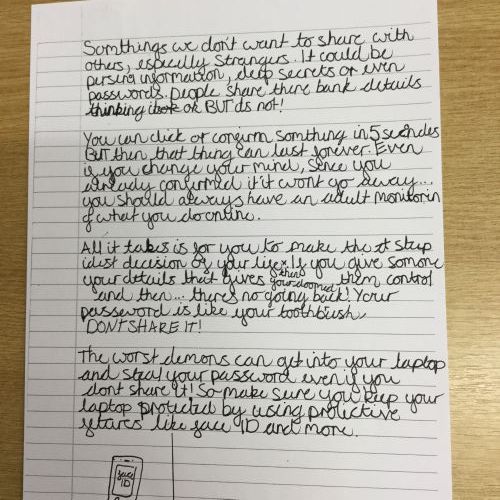 Somthings we don't want to share with
others, especilly strangers. It could be
persinl information, deep secrets or even
passwords. People share there bank details
thinking ok BUT its not!
You can click or confirm somthing in 5 secondes
BUT then that thing can last forever. Even
if you change your mind, Sence you
already confirmed it it wont go away...
you should always have an adult monitorin
of what you do online.
All it takes is for you to make the st step
idest decision of your life. If you give somone
then your doomed
your details that gives them control
and then... theres no going back! Your
password is like your toothbush,
DONT SHARE IT!
The worst demons can get into your laptop
and steal your password even if you
dont share it! So make sure you keep your
laptop protected by using protective
fetares like face ID and more.
face
ID